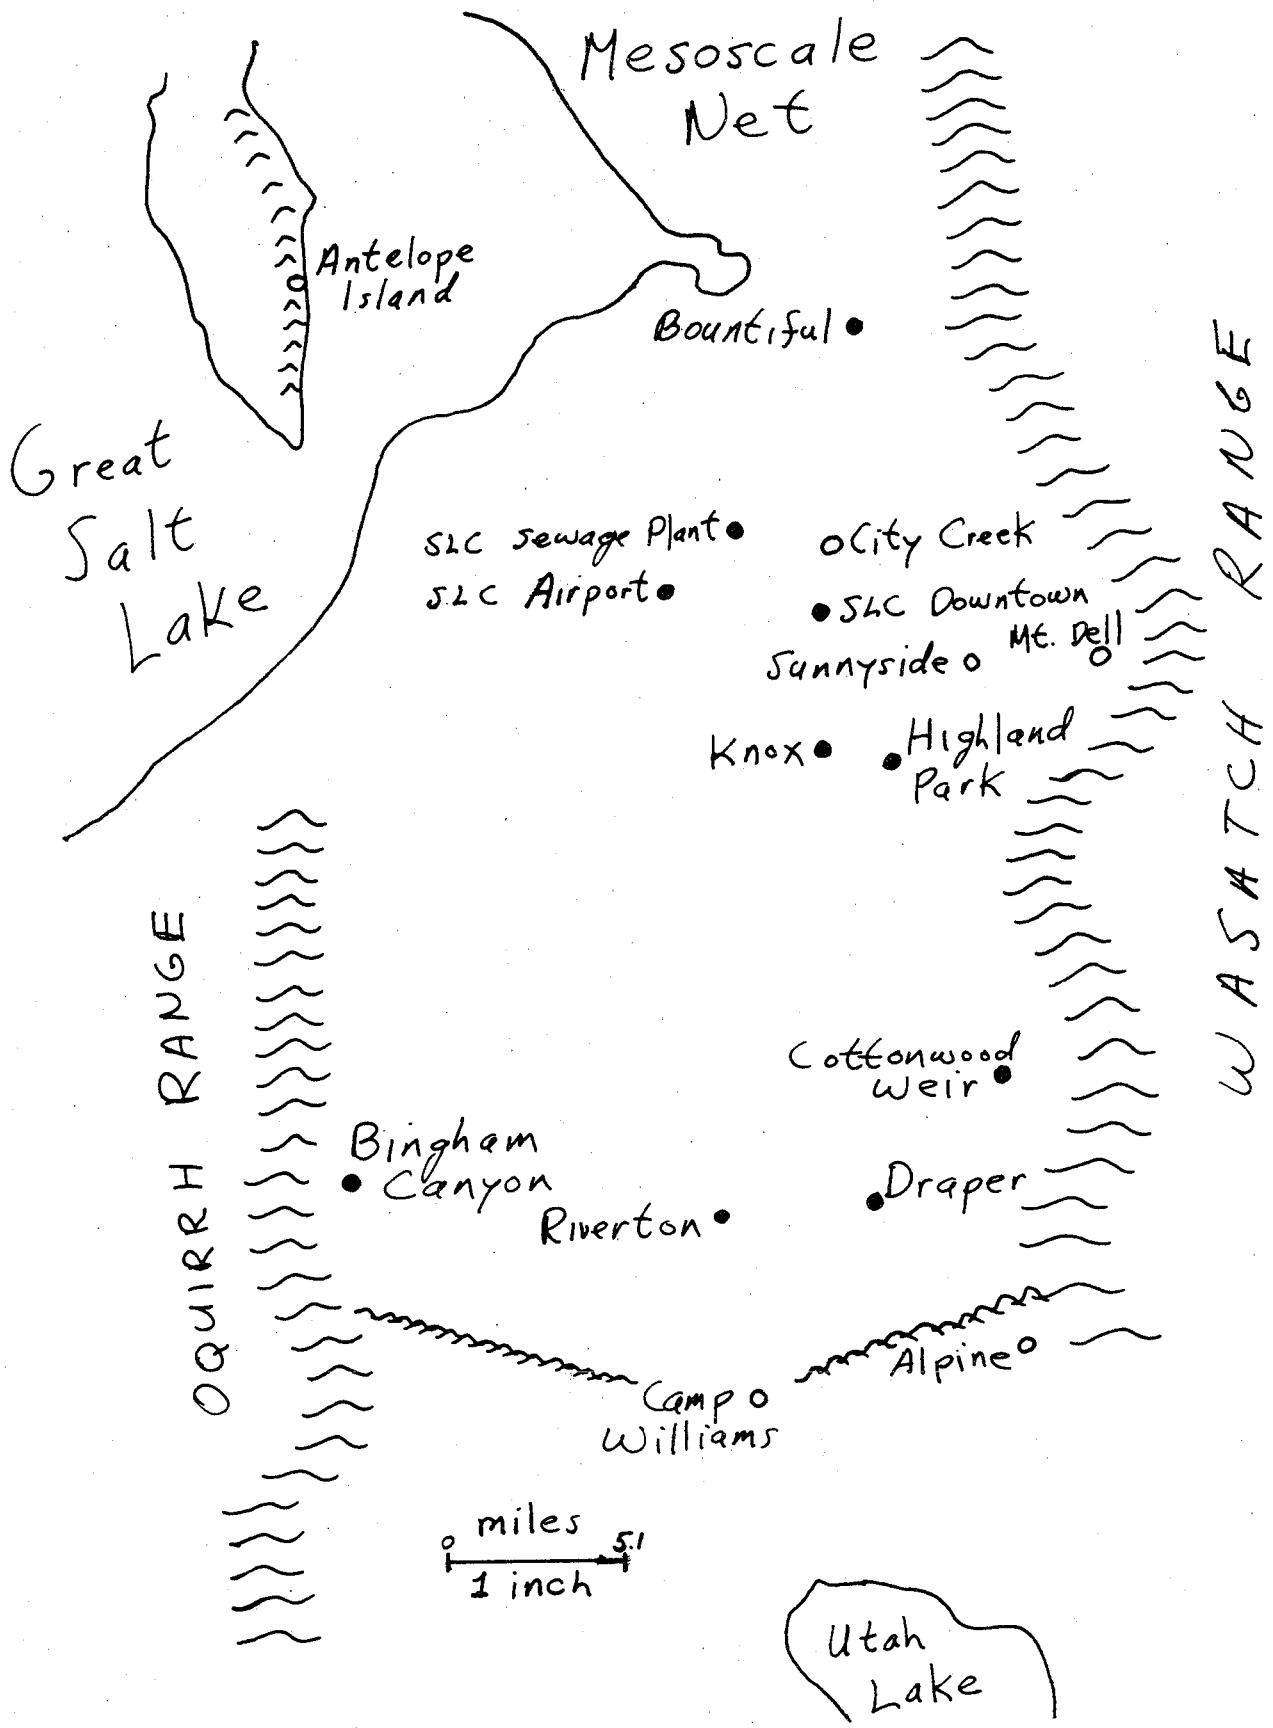 Mesoscale
Net
Antelope
Island
Bountiful
Great
Salt
Lake
SLC Sewage Plant
City Creek
SLC Airport
SLC Downtown
Mt. Dell
Sunnyside
Knox
Highland
Park
WASATCH RANGE
OQUIRRH RANGE
Cottonwood
Weir
Bingham
Canyon
Draper
Riverton
Alpine
Camp
Williams
miles
0 5.1
1 inch
Utah
Lake